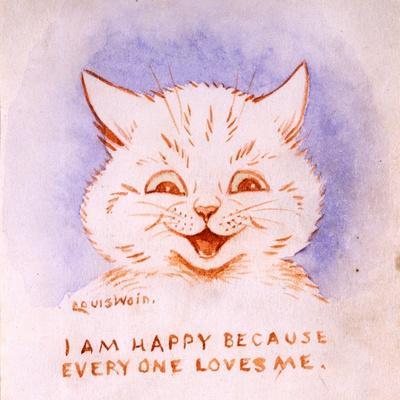 Louis Wain.
I AM HAPPY BECAUSE
EVERY ONE LOVES ME.